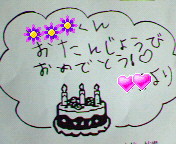 おたんじょうび
おめでとう!♡
より